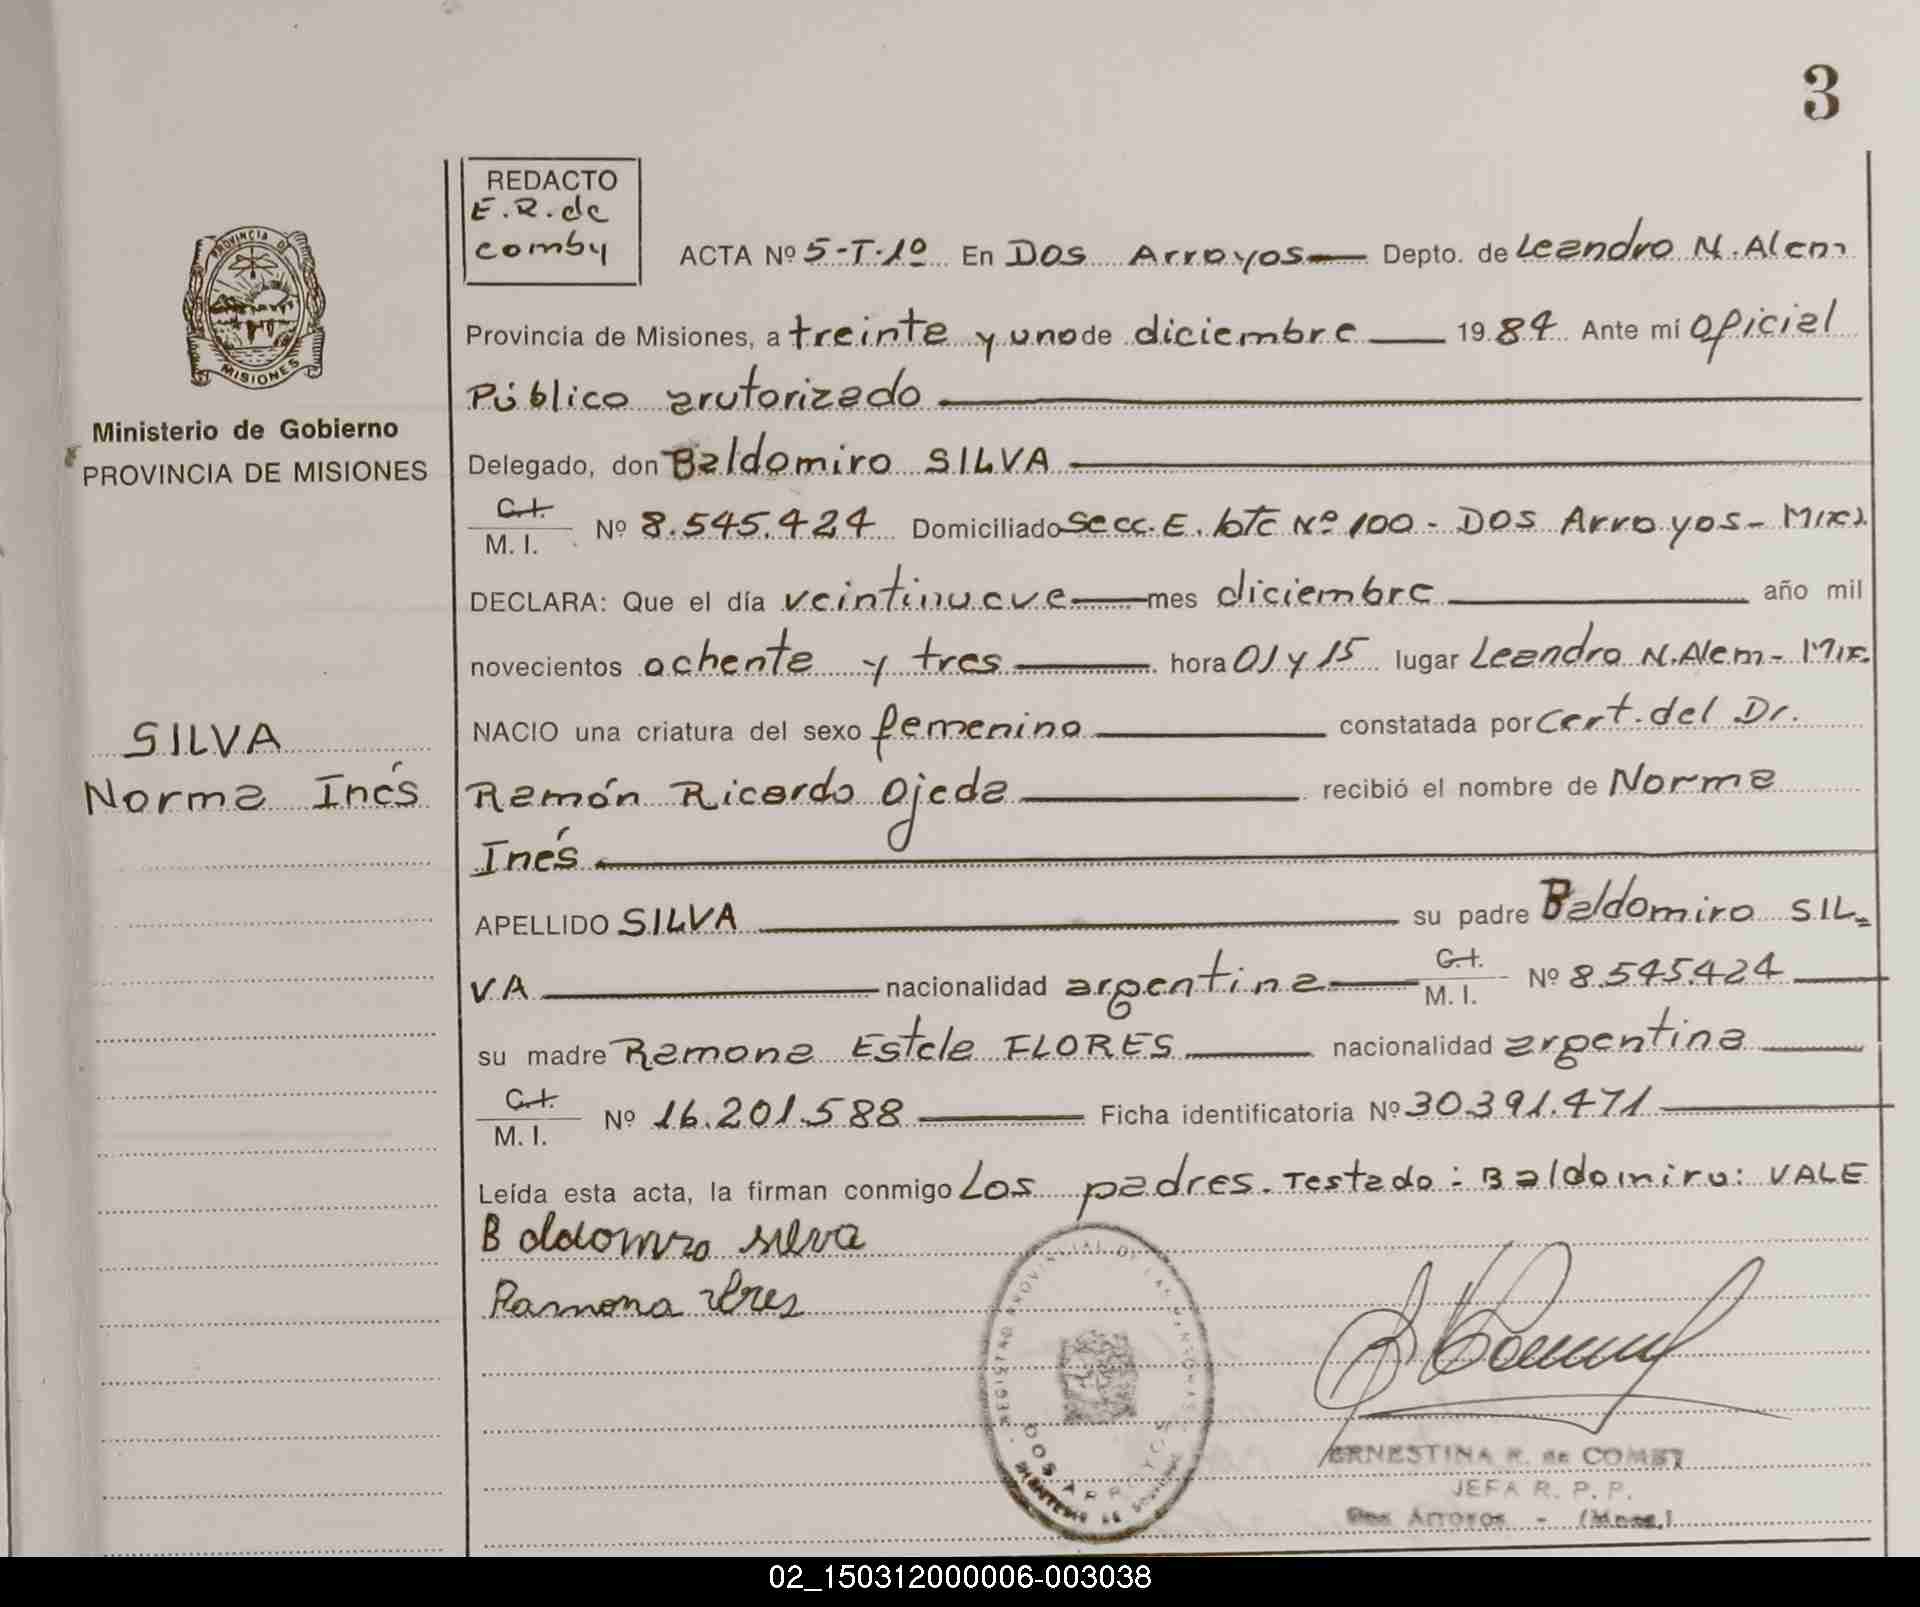 3
REDACTO
E.R. de
comby
ACTA Nº 5-T-1º En Dos Arroyos Depto. de Leandro N. Alem
Provincia de Misiones, a treinta y uno de diciembre 1984 Ante mí oficial
Público arutorizado
PROVINCIA DE
MISIONES
Ministerio de Gobierno
PROVINCIA DE MISIONES
Delegado, don Baldomiro SILVA
C.I.
M. I. Nº 8.545.424 Domiciliado Secc. E. lote Nº 100 - Dos Arroyos -
DECLARA: Que el día veintinueve mes diciembre año mil
novecientos ochenta y tres hora 01 y 15 lugar Leandro N. Alem -
SILVA
Norma Inés
NACIO una criatura del sexo femenino constatada por Cert. del Dr.
Ramón Ricardo Ojeda recibió el nombre de Norma
Inés
APELLIDO SILVA su padre Baldomiro SIL=
VA nacionalidad argentina C.I. M. I. Nº 8.545.424
su madre Ramona Estela FLORES nacionalidad argentina
C.I.
M. I. Nº 16.201.588 Ficha identificatoria Nº 30.391.471
Leída esta acta, la firman conmigo Los padres. Testado: Baldomiro: VALE
Baldomiro silva
Ramona
REGISTRO PROVINCIAL DE LAS PERSONAS
DOS ARROYOS
MINISTERIO DE GOBIERNO
ERNESTINA R. de COMBY
JEFA R. P. P.
Dos Arroyos - (Mnes.)
02_150312000006-003038